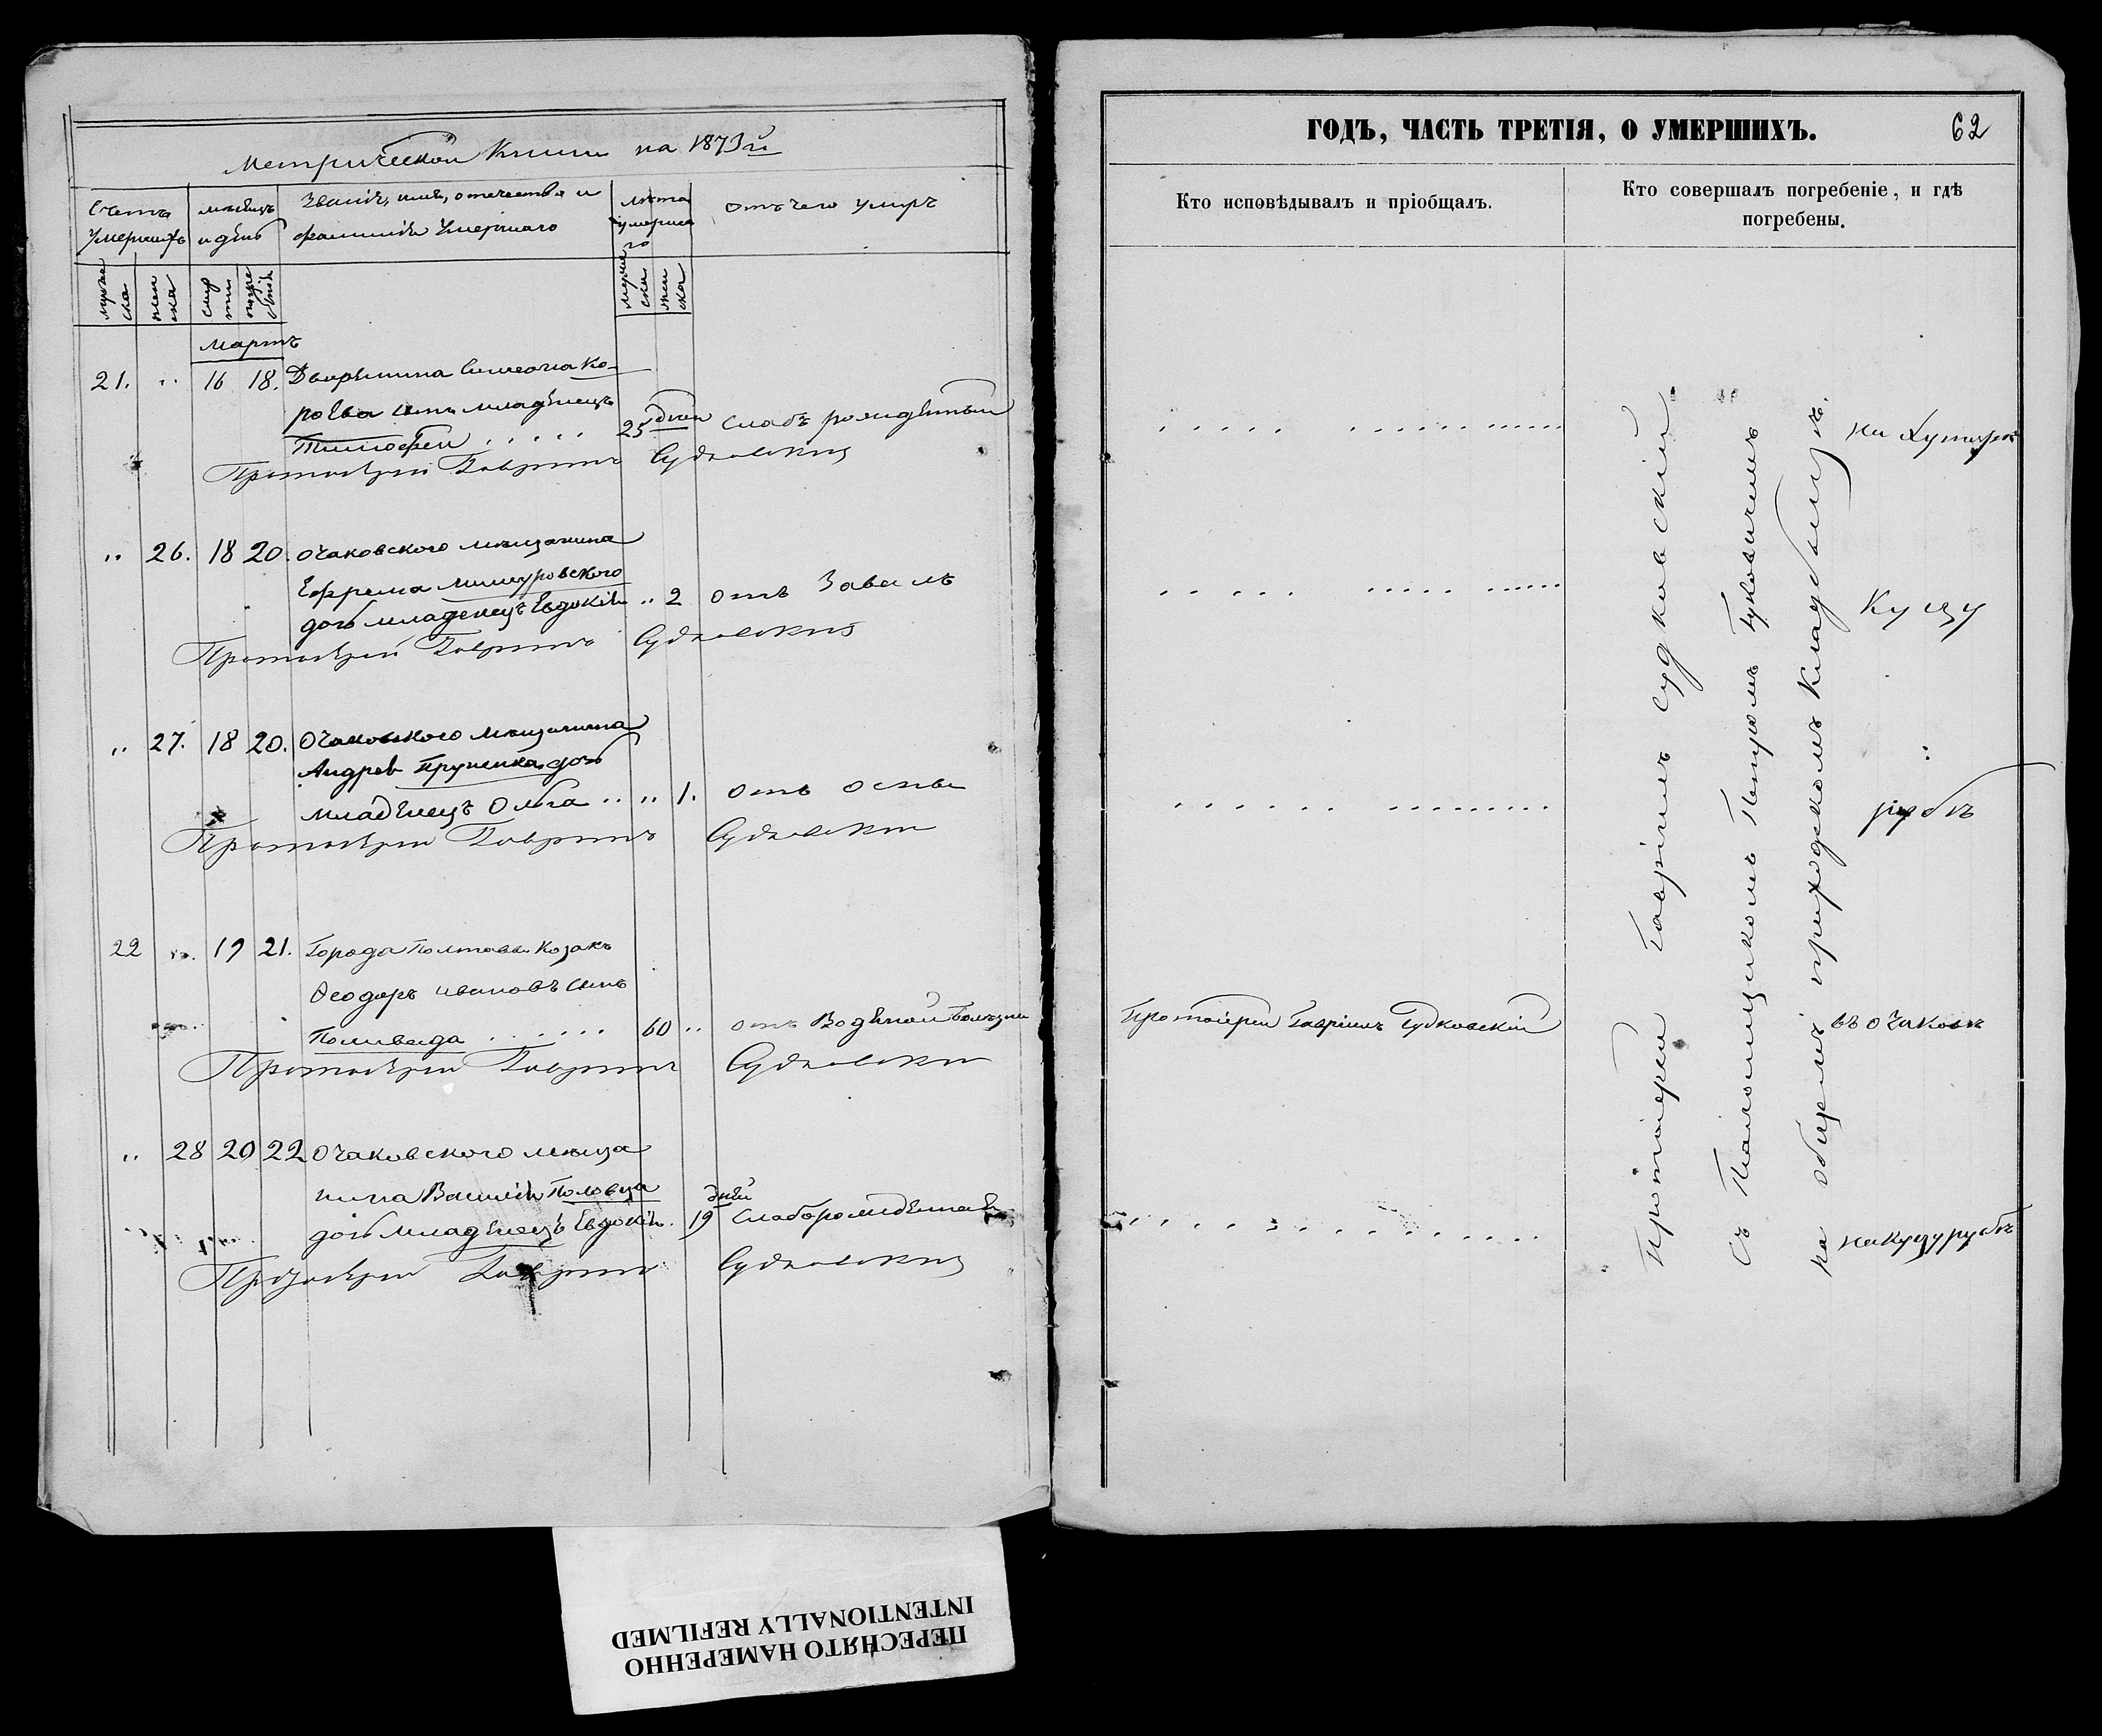 Метрической Книги на 1873й
Счетъ умершихъ
мѣсяцъ и день
Званіе, имя, отечество и фамилія умершаго
лѣта умершаго
отъ чего умеръ
муже ска
жен ска
смер ти
погре бенія
муже ска
жен ска
Мартъ
21. " 16 18. Дворянина Симеона Ко-
роева сынъ младенецъ
Тимофей . . . . . 25 дней слабъ рожденный
Протоіерей Гавріилъ Судковскій
" 26. 18 20. Очаковского мѣщанина
Ефрема
дочь младенецъ Евдокія " 2 отъ
Протоіерей Гавріилъ Судковскій
" 27. 18 20. Очаковского мѣщанина
Андрея дочь
младенецъ Ольга " " 1. отъ оспы
Протоіерей Гавріилъ Судковскій
22 " 19 21. Города Полтавы Козакъ
Ѳеодоръ Ивановъ сынъ
Поливода . . . . . 60 " отъ Водяной болѣзни
Протоіерей Гавріилъ Судковскій
" 28 20 22 Очаковского мѣща
нина Василія Половца
дочь младенецъ Евдокія. 19 дней слаборожденная
Протоіерей Гавріилъ Судковскій
ГОДЪ, ЧАСТЬ ТРЕТІЯ, О УМЕРШИХЪ.
62
Кто исповѣдывалъ и пріобщалъ.
Кто совершалъ погребеніе, и гдѣ
погребены.
на Хуторѣ
Куцу
рубѣ
Протоіерей Гавріилъ Судковскій
въ Очаковѣ
на Куцурубѣ
Протоіерей Гавріилъ Судковскій
съ Псаломщикомъ Петромъ Буковичемъ
на общемъ приходскомъ кладбищѣ.
ПЕРЕСНЯТО НАМЕРЕННО
INTENTIONALLY REFILMED